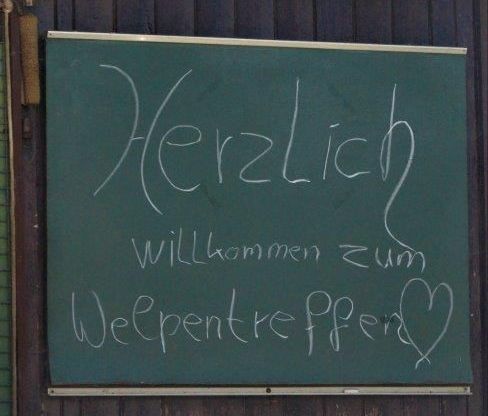 HerzLich
willkommen zum
Welpentreffen♡